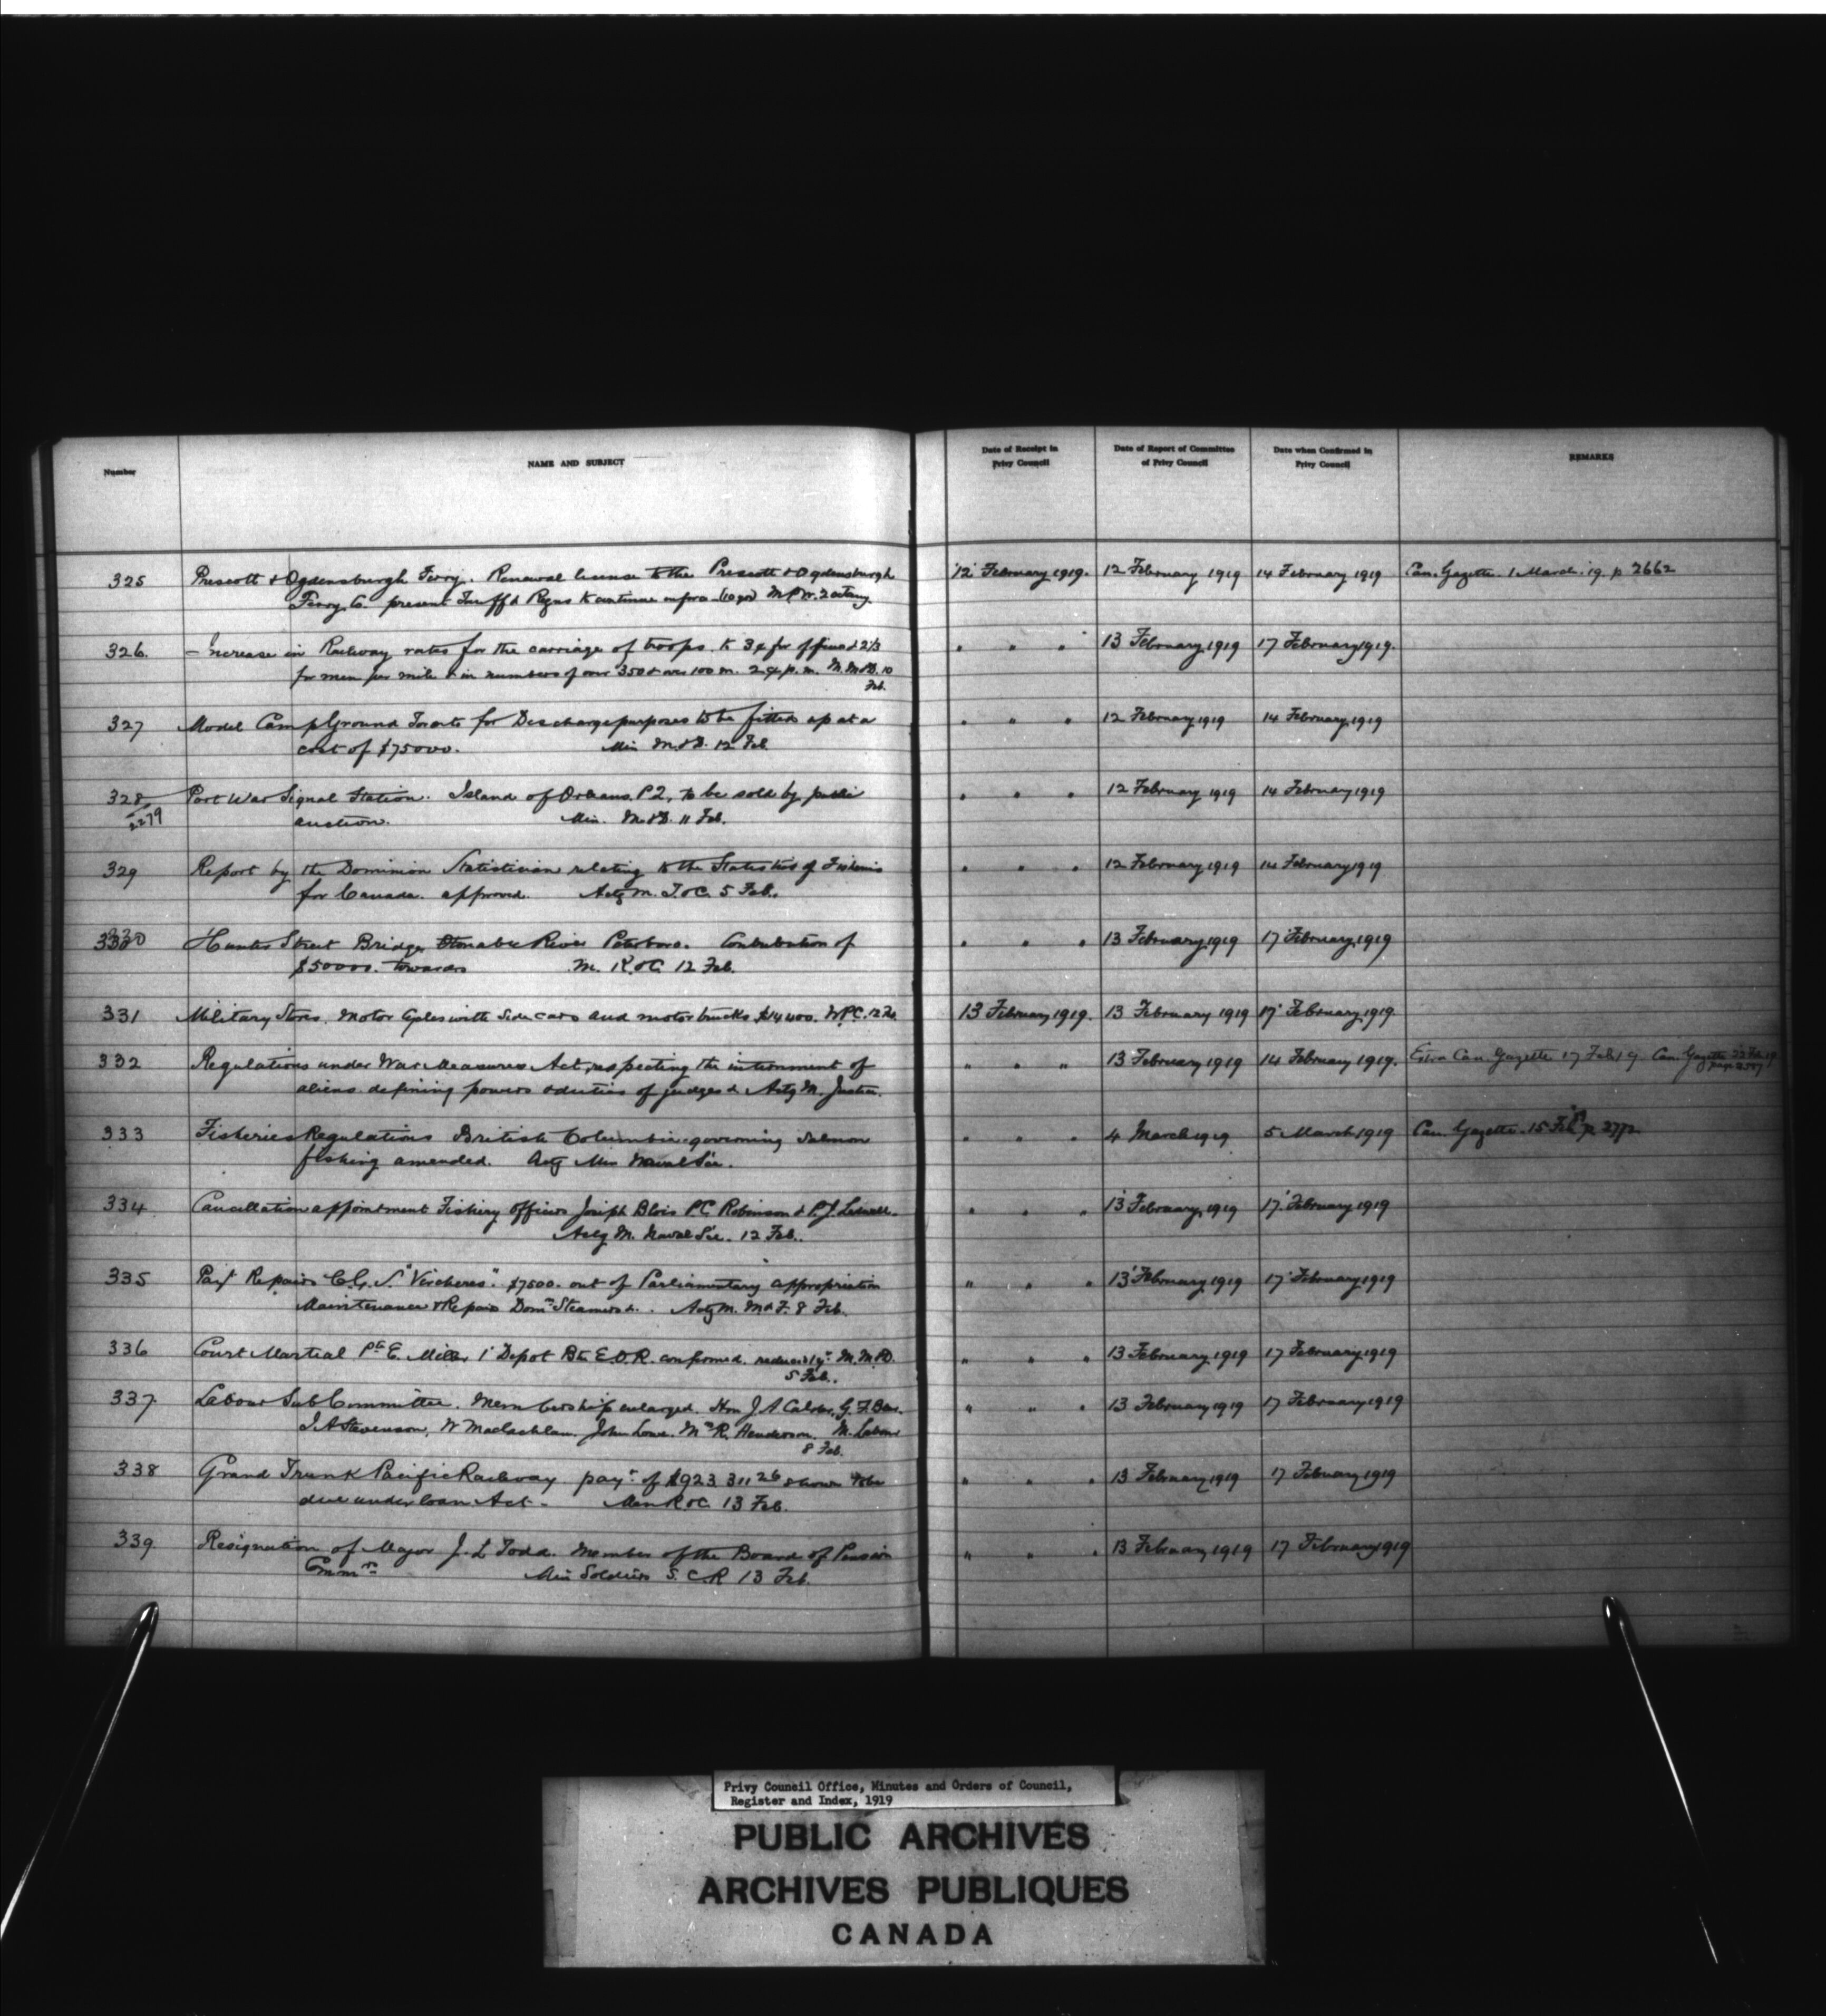 Number
NAME AND SUBJECT
Date of Receipt in
Privy Council
Date of Report of Committee
of Privy Council
Date when Confirmed in
Privy Council
REMARKS
325 Prescott & Ogdensburgh Ferry. Renewal license to the Prescott & Ogdensburgh 12 February 1919. 12 February 1919 14 February 1919 Can. Gazette 1 March 19. p 2662
Ferry Co. present Tariff & Regns to continue
326. – Increase in Railway rates for the carriage of troops. to 3¢ for officers & 2 1/3 " " " 13 February 1919 17 February 1919.
for men per mile & in numbers of over 350 & over 100 m. 2¢ p. m. M. M&D. 10
Feb.
327 Model Camp Ground Toronto for Discharge purposes to be fitted up at a " " " 12 February 1919 14 February 1919
cost of $75000. Min M.&D. 12 Feb
328 Port War Signal Station. Island of Orleans. P2, to be sold by public " " " 12 February 1919 14 February 1919
2279 auction. Min. M&D. 11 Feb.
329 Report by the Dominion Statistician relating to the Statistics of Fisheries " " " 12 February 1919 14 February 1919
for Canada. approved. Actg M. T.&C. 5 Feb.
330 Hunter Street Bridge Otonabee River Peterboro. Contribution of " " " 13 February 1919 17 February 1919
$50000. towards M. R.&C. 12 Feb.
331 Military Stores. Motor Cycles with Side cars and motor trucks $14400. W.P.C. 12 Feb 13 February 1919. 13 February 1919 17 February 1919
332 Regulations under War Measures Act, respecting the internment of " " " 13 February 1919 14 February 1919. Extra Can. Gazette 17 Feb 19. Can. Gazette 22 Feb 19
aliens defining powers & duties of judges &. Actg M. Justice.
333 Fisheries Regulations British Columbia governing Salmon " " " 4 March 1919 5 March 1919 Can. Gazette 15
fishing amended. Actg Min Naval Ser.
334 Cancellation appointment Fishery Officers Joseph Blois P.C Robinson & P.J. " " " 13 February 1919 17 February 1919
Actg M. Naval Ser. 12 Feb.
335 Payt Repairs C.G.S. "Vercheres". $7500. out of Parliamentary appropriation " " " 13 February 1919 17 February 1919
Maintenance & Repairs Domn Steamers &. Actg M. M&F. 8 Feb.
336 Court Martial Pte E. 1st Depot Btn E.O.R. confirmed. reduced 1 yr M. M.&D. " " " 13 February 1919 17 February 1919
5 Feb.
337. Labour Sub Committee. Membership enlarged. Hon J.A Calder, G.F. " " " 13 February 1919 17 February 1919
J.A Stevenson, W Maclachlan, John Lowe. Mrs R. Henderson. M. Labour
8 Feb.
338 Grand Trunk Pacific Railway payt of $923 311 26 shown to be " " " 13 February 1919 17 February 1919
due under loan Act – Min R&C 13 Feb.
339. Resignation of Major J. L Todd. Member of the Board of Pension " " " 13 February 1919 17 February 1919
Commrs Min Soldiers S.C.R 13 Feb.
Privy Council Office, Minutes and Orders of Council,
Register and Index, 1919
PUBLIC ARCHIVES
ARCHIVES PUBLIQUES
CANADA